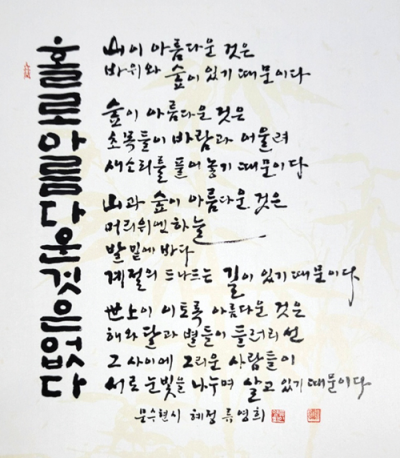 홀로 아름다운 것은 없다
山이 아름다운 것은
바위와 숲이 있기 때문이다
숲이 아름다운 것은
초목들이 바람과 어울려
새소리를 풀어 놓기 때문이다
山과 숲이 아름다운 것은
머리 위엔 하늘
발 밑에 바다
계절의 드나드는 길이 있기 때문이다
世上이 이토록 아름다운 것은
해와 달과 별들이 둘러리 선
그 사이에 그리운 사람들이
서로 눈빛을 나누며 살고 있기 때문이다
문수현 시 혜정 류영희